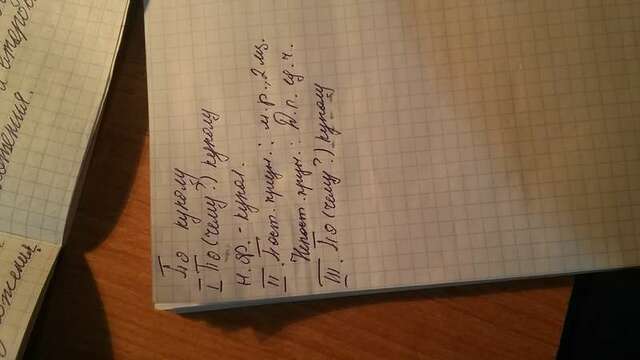 ложения.
ложения.
и второ
По куполу
I По (чему?) куполу
Н.ф. - купол.
II. Пост. призн.: м.р., 2 скл.
Непост. призн.: Д.п. ед. ч.
III. По (чему?) куполу